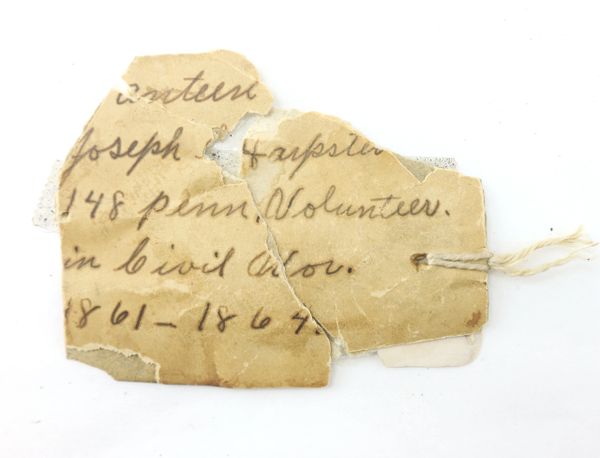 anteen
Joseph Harpster
148 penn. Volunteer.
in Civil War.
1861 – 1864.